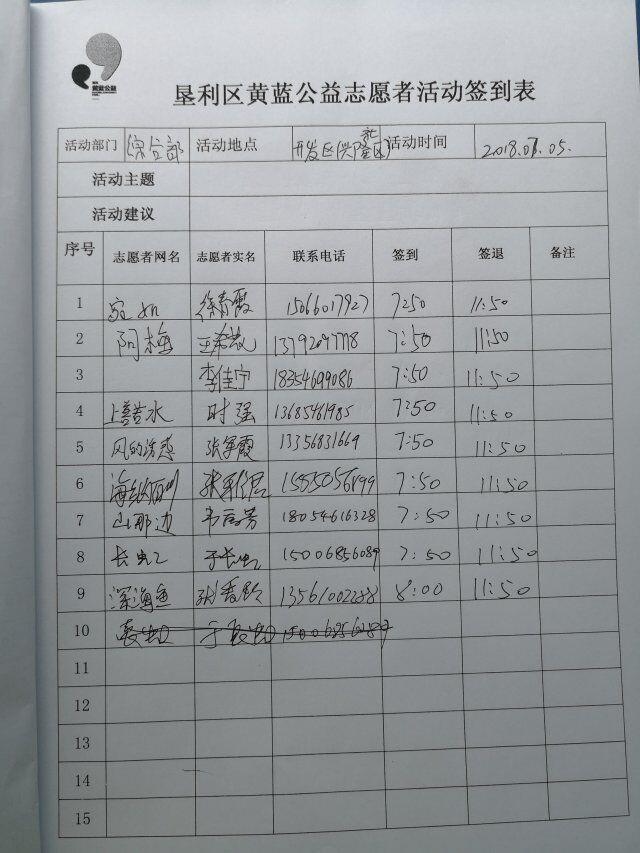 黄蓝公益
垦利区黄蓝公益志愿者活动签到表
活动部门 综合部 活动地点 开发区(兴隆社区) 活动时间 2018.07.05.
活动主题
活动建议
序号 志愿者网名 志愿者实名 联系电话 签到 签退 备注
1 宛如 徐春霞 15066017927 7:50 11:50
2 阿梅 13792097778 7:50 11:50
3 李佳宁 18354699086 7:50 11:50
4 上善若水 时强 13685461985 7:50 11:50
5 风的诱惑 张军霞 13356831669 7:50 11:50
6 7:50 11:50
7 山那边 韦 芳 18054616328 7:50 11:50
8 长虹 于长虹 15006856089 7:50 11:50
9 深海鱼 张秀玲 13561002288 8:00 11:50
10
11
12
13
14
15